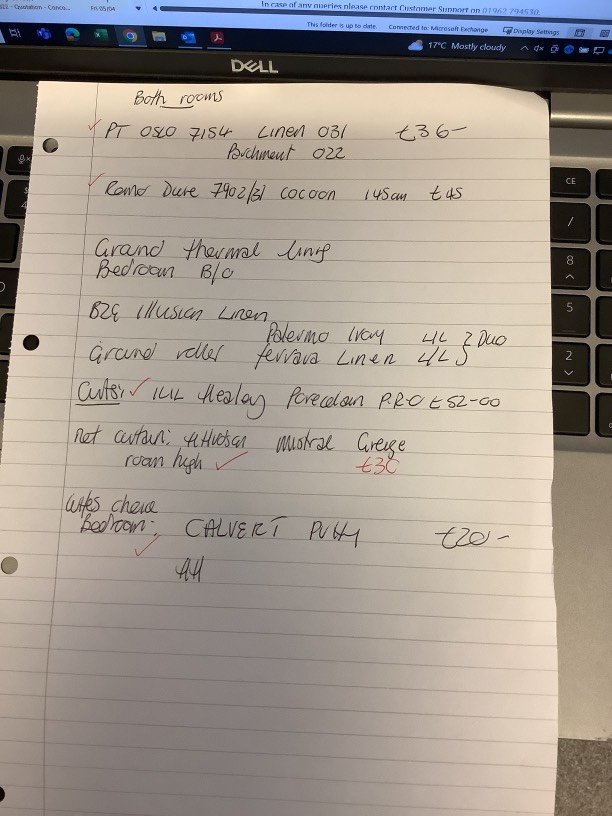 In case of any queries please contact Customer Support on 01962 794530
Fri 05/04
This folder is up to date. Connected to: Microsoft Exchange Display Settings
17°C Mostly cloudy
DELL
Both rooms
PT OSLO 7154 Linen 031 £36-
Parchment 022
Romo Dune 7902/31 cocoon 145cm £45
Grand thermal
Bedroom B/O
illusion Linen
Palermo Ivory 4L } Duo
Grand roller ferrara Linen 4L
Healey Porcelain P.R.O £52-00
net curtain: mistral Greige
room high £30
Bedroom: CALVERT PUtty £20-
AH
CE
/
8
5
2